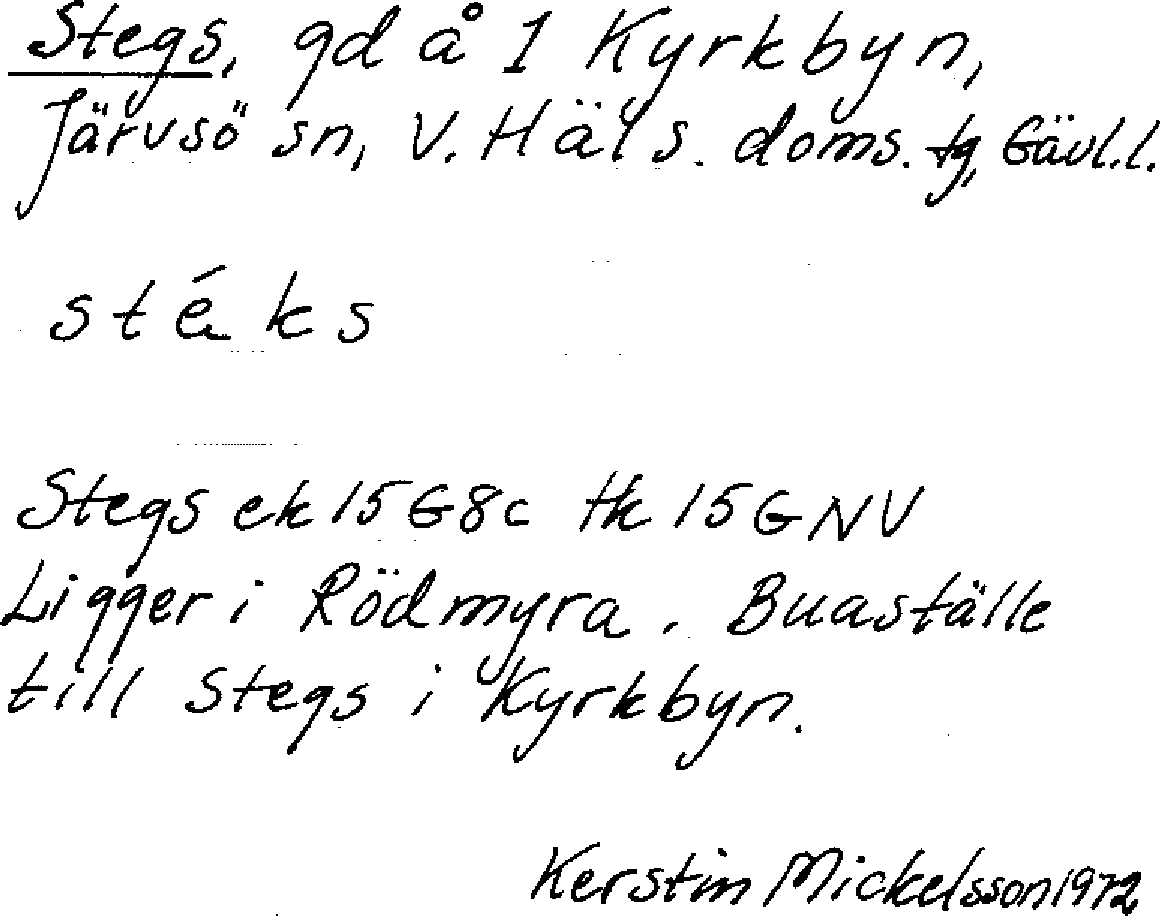 Stegs, gd å 1 Kyrkbyn,
Järvsö sn, V. Häls. doms. tg, Gävl.l.
stéks
Stegs ek 15G8c tk 15GNV
Ligger i Rödmyra. Buaställe
till Stegs i Kyrkbyn.
Kerstin Mickelsson 1972